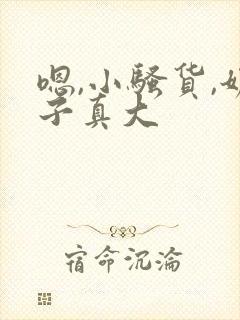 嗯,小骚货,奶
子真大
宿命沉沦